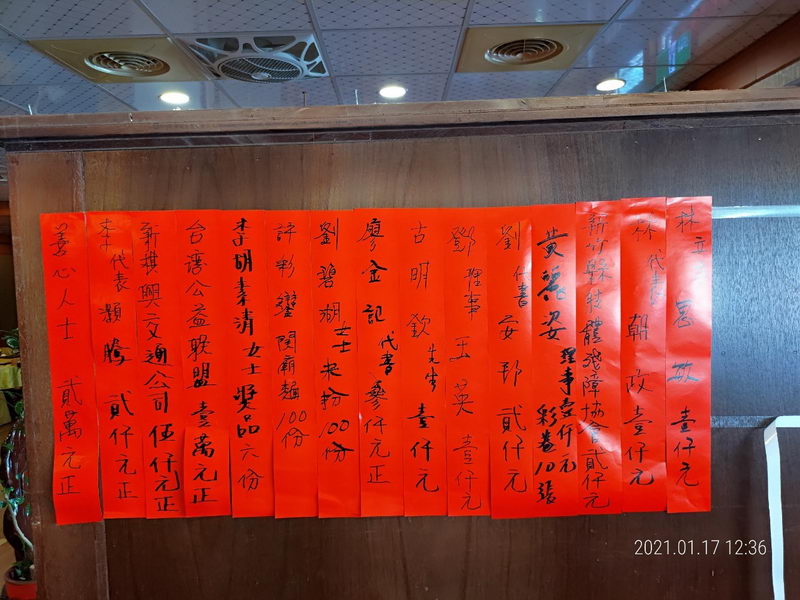 林立 惠敏 壹仟元
林代書 朝政 壹仟元
新竹縣肢體殘障協會 貳仟元
黃麗姿 理事 壹仟元 彩卷10張
劉代書 安邦 貳仟元
鄧理事 玉英 壹仟元
古明欽 先生 壹仟元
廖金記 代書 參仟元正
劉碧湖 女士 米粉100份
許彩鑾 関廟麵100份
李胡素清 女士 獎品六份
台湾公益聯盟 壹萬元正
新棋興交通公司 伍仟元正
李代表 灝騰 貳仟元正
善心人士 貳萬元正
2021.01.17 12:36